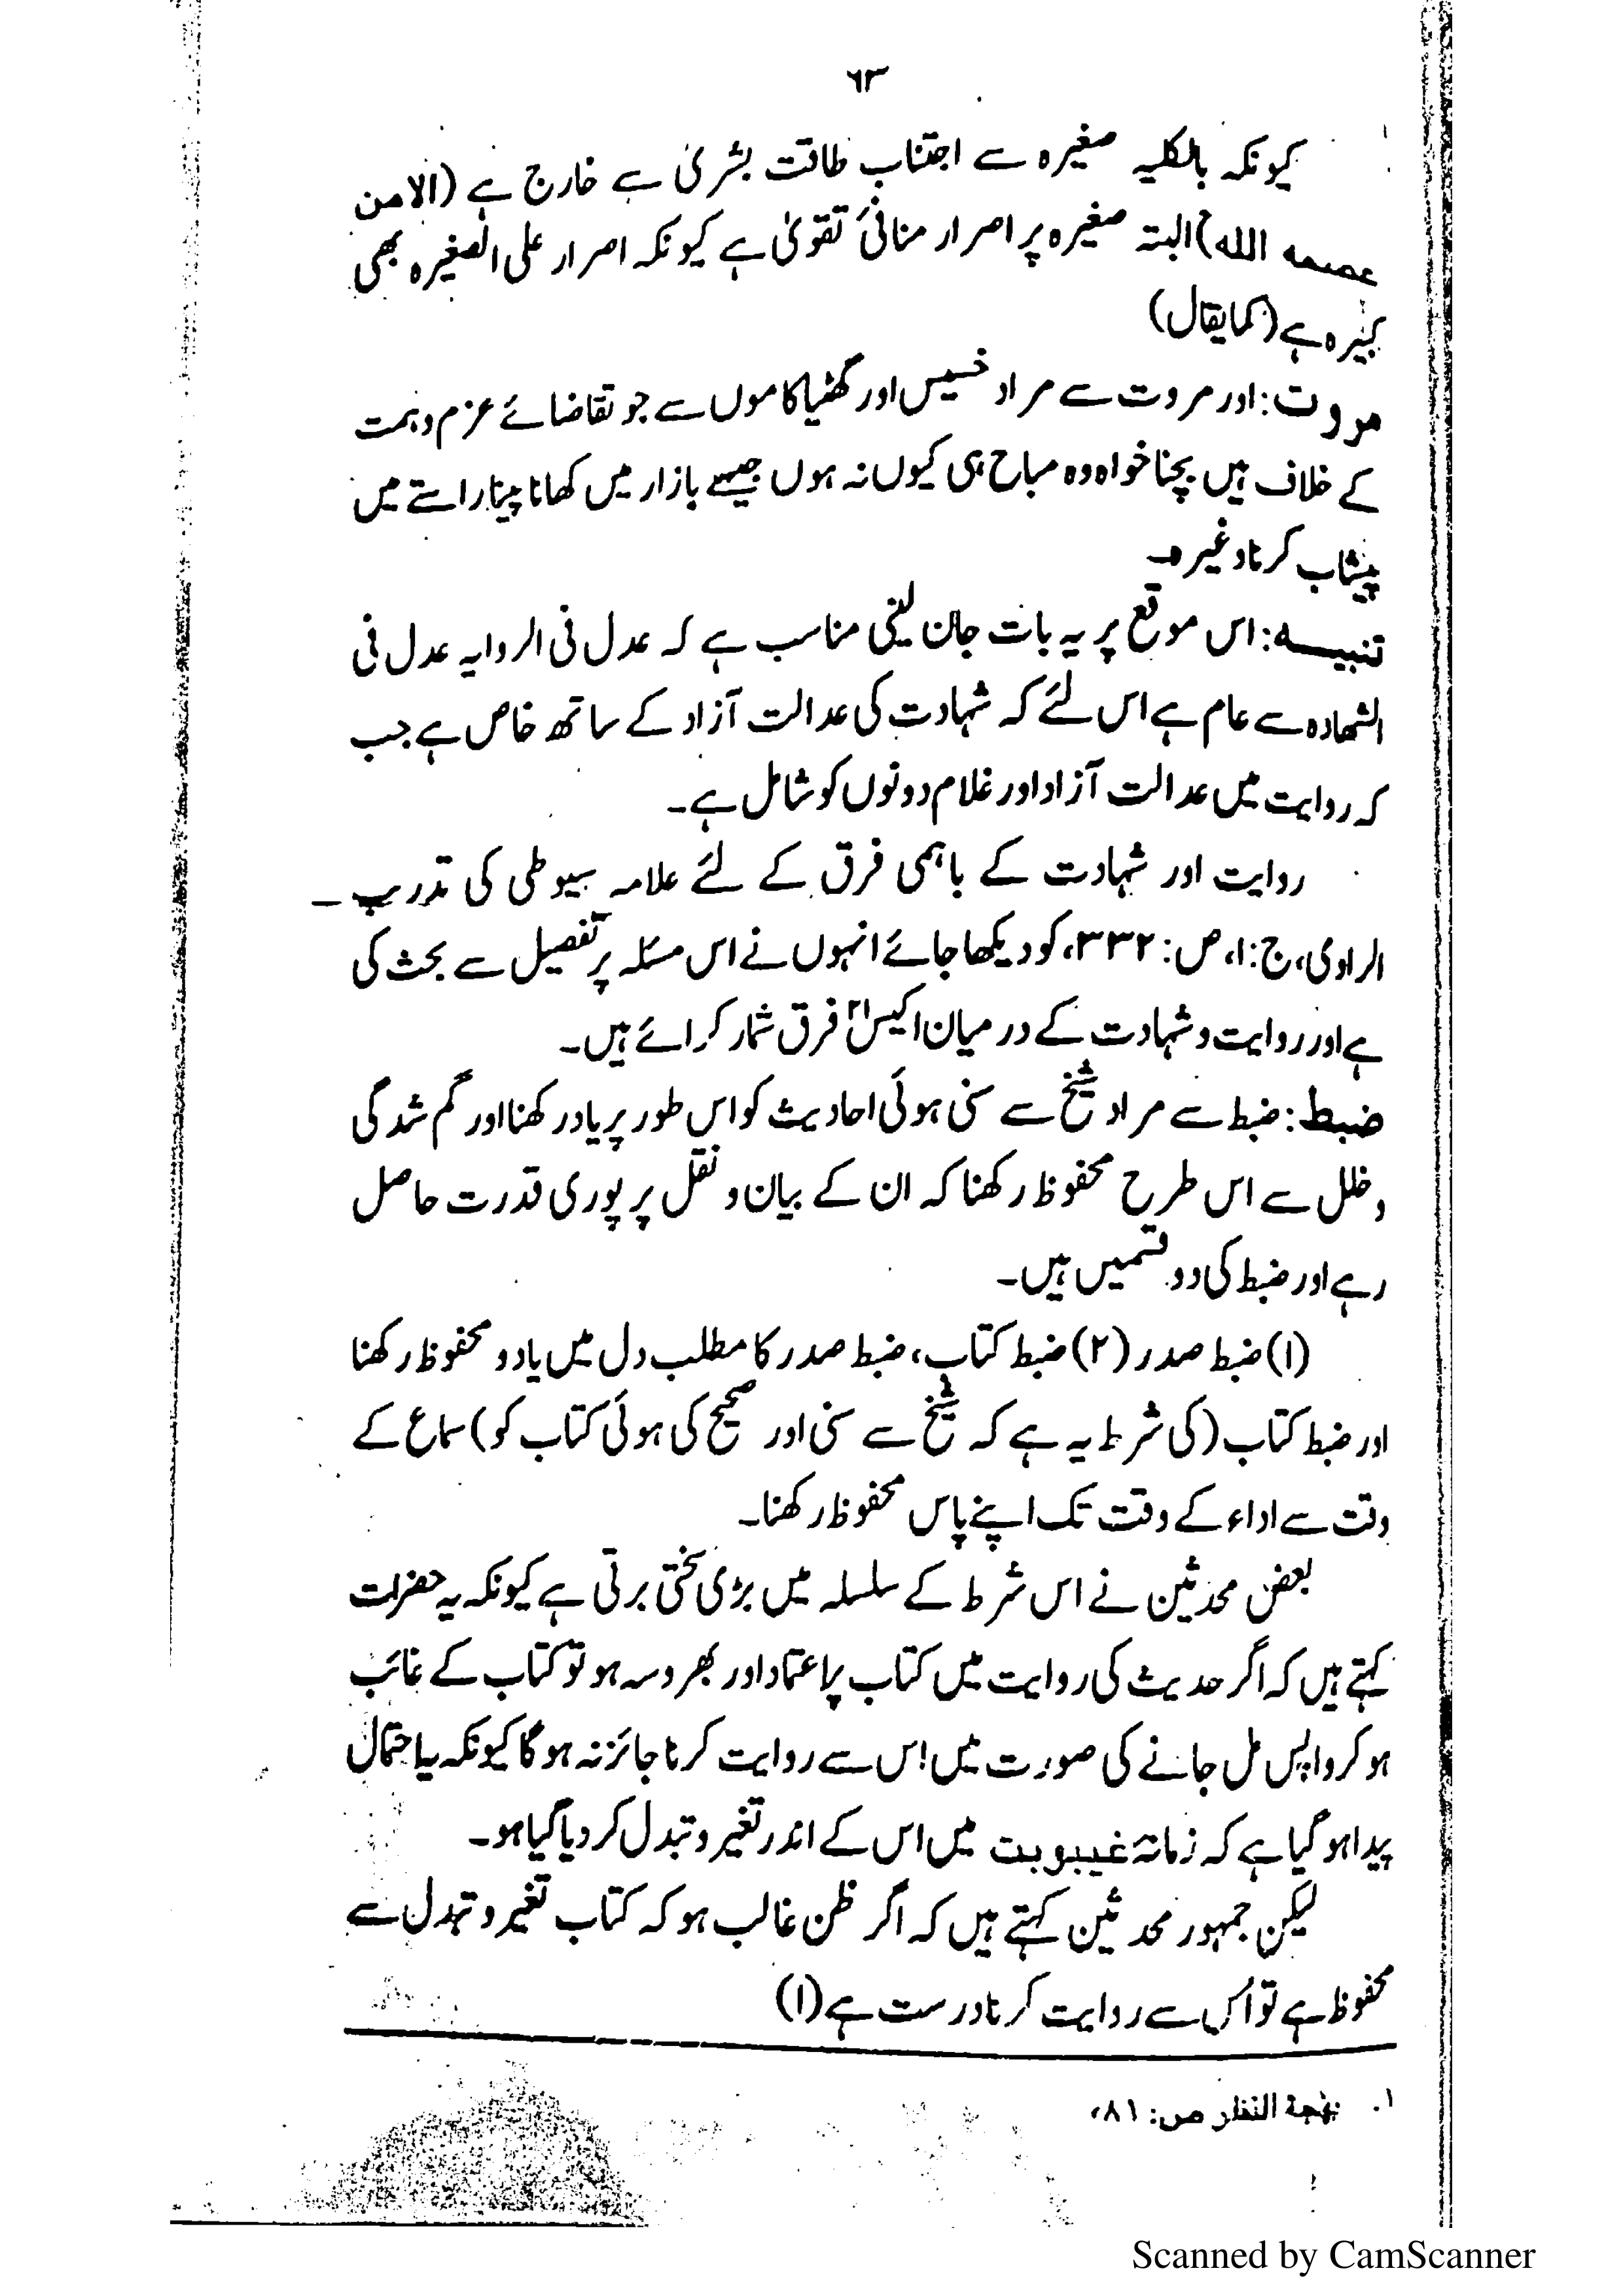 ٦٣
کیونکہ بالکلیہ صغیرہ سے اجتناب طاقت بشری سے خارج ہے (الا من
عصمه الله) البتہ صغیرہ پر اصرار منافیٔ تقویٰ ہے کیونکہ اصرار علی الصغیرہ بھی
کبیرہ ہے (کما یقال)
مروت: اور مروت سے مراد خسیس اور گھٹیا کاموں سے جو تقاضائے عزم و ہمت
کے خلاف ہیں بچنا خواہ وہ مباح ہی کیوں نہ ہوں جیسے بازار میں کھانا پینا راستے میں
پیشاب کرنا وغیرہ۔
تنبیہ: اس موقع پر یہ بات جان لینی مناسب ہے کہ عدل فی الروایہ عدل فی
الشھادہ سے عام ہے اس لئے کہ شہادت کی عدالت آزاد کے ساتھ خاص ہے جب
کہ روایت میں عدالت آزاد اور غلام دونوں کو شامل ہے۔
روایت اور شہادت کے باہمی فرق کے لئے علامہ سیوطی کی تدریب
الراوی، ج:۱، ص: ۳۳۲، کو دیکھا جائے انہوں نے اس مسئلہ پر تفصیل سے بحث کی
ہے اور روایت و شہادت کے درمیان اکیس۲۱ فرق شمار کرائے ہیں۔
ضبط: ضبط سے مراد شیخ سے سنی ہوئی احادیث کو اس طور پر یاد رکھنا اور گم شدگی
و خلل سے اس طرح محفوظ رکھنا کہ ان کے بیان و نقل پر پوری قدرت حاصل
رہے اور ضبط کی دو قسمیں ہیں۔
(۱) ضبط صدر (۲) ضبط کتاب، ضبط صدر کا مطلب دل میں یاد و محفوظ رکھنا
اور ضبط کتاب (کی شرط یہ ہے کہ شیخ سے سنی اور صحیح کی ہوئی کتاب کو) سماع کے
وقت سے اداء کے وقت تک اپنے پاس محفوظ رکھنا۔
بعض محدثین نے اس شرط کے سلسلہ میں بڑی سختی برتی ہے کیونکہ یہ حضرات
کہتے ہیں کہ اگر حدیث کی روایت میں کتاب پر اعتماد اور بھروسہ ہو تو کتاب کے غائب
ہو کر واپس مل جانے کی صورت میں اس سے روایت کرنا جائز نہ ہو گا کیونکہ یہ احتمال
پیدا ہو گیا ہے کہ زمانۂ غیبوبت میں اس کے اندر تغیر و تبدل کر دیا گیا ہو۔
لیکن جمہور محدثین کہتے ہیں کہ اگر ظن غالب ہو کہ کتاب تغیر و تبدل سے
محفوظ ہے تو اُس سے روایت کرنا درست ہے (۱)
۱. بهجة النظر ص: ۸۱،
Scanned by CamScanner